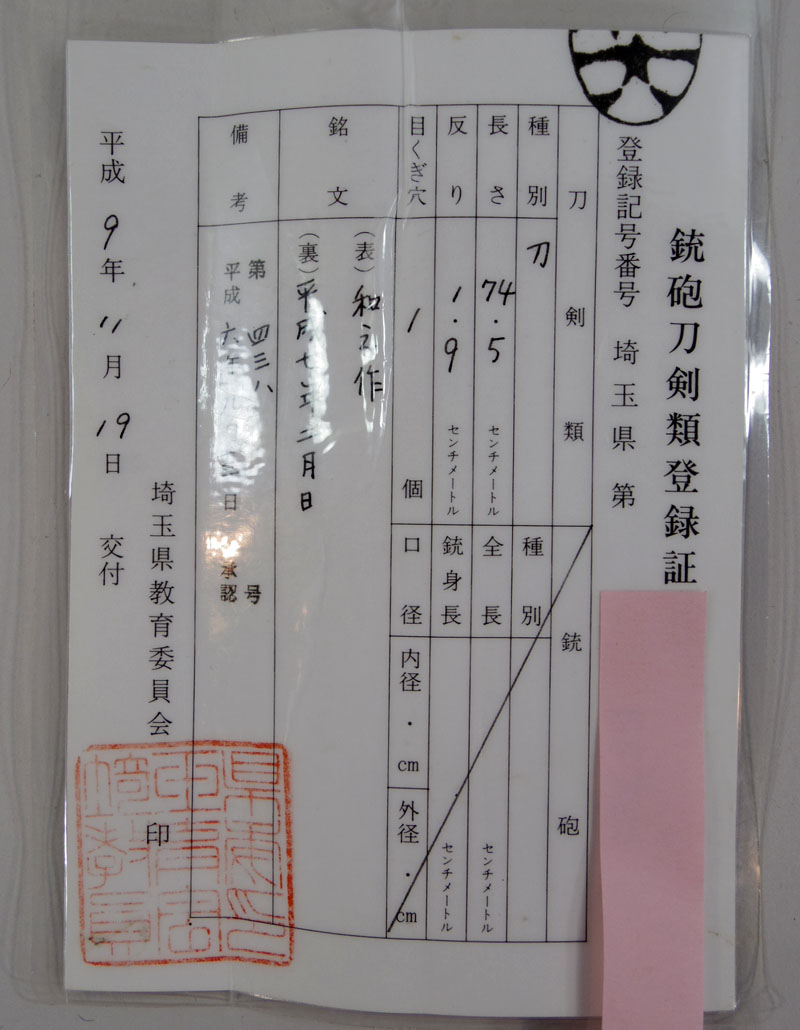 銃砲刀剣類登録証
登録記号番号 埼玉県 第
刀剣類
種別 刀
長さ 74.5 センチメートル
反り 1.9 センチメートル
目くぎ穴 1 個
銘文
(表) 和 作
(裏) 平成七年二月日
備考
第 四三八 号
平成 六年 日 承認
銃砲
種別
全長 センチメートル
銃身長 センチメートル
口径 内径 ・ cm 外径 ・ cm
平成 9年 11月 19日 交付
埼玉県教育委員会 印